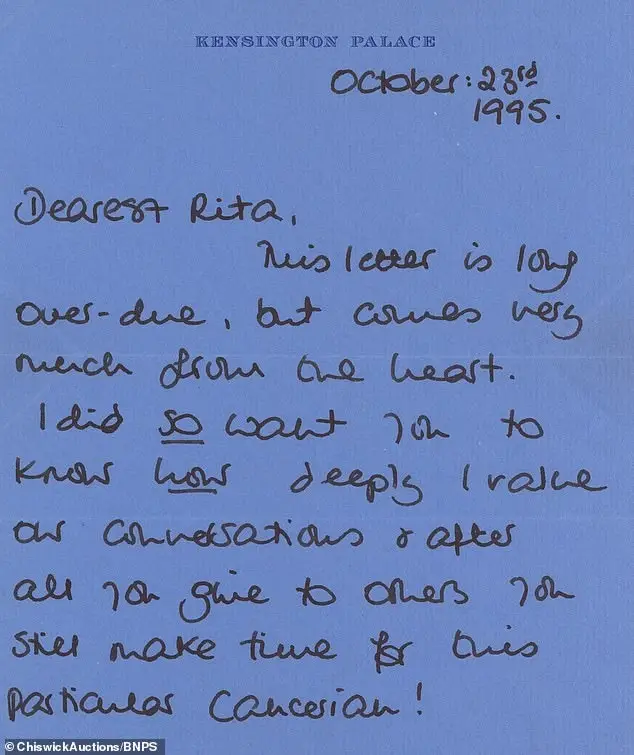 KENSINGTON PALACE
October: 23rd
1995.
Dearest Rita,
This letter is long
over-due, but comes very
much from the heart.
I did so want you to
know how deeply I value
our conversations & after
all you give to others you
still make time for this
particular Cancerian!
© ChiswickAuctions/BNPS